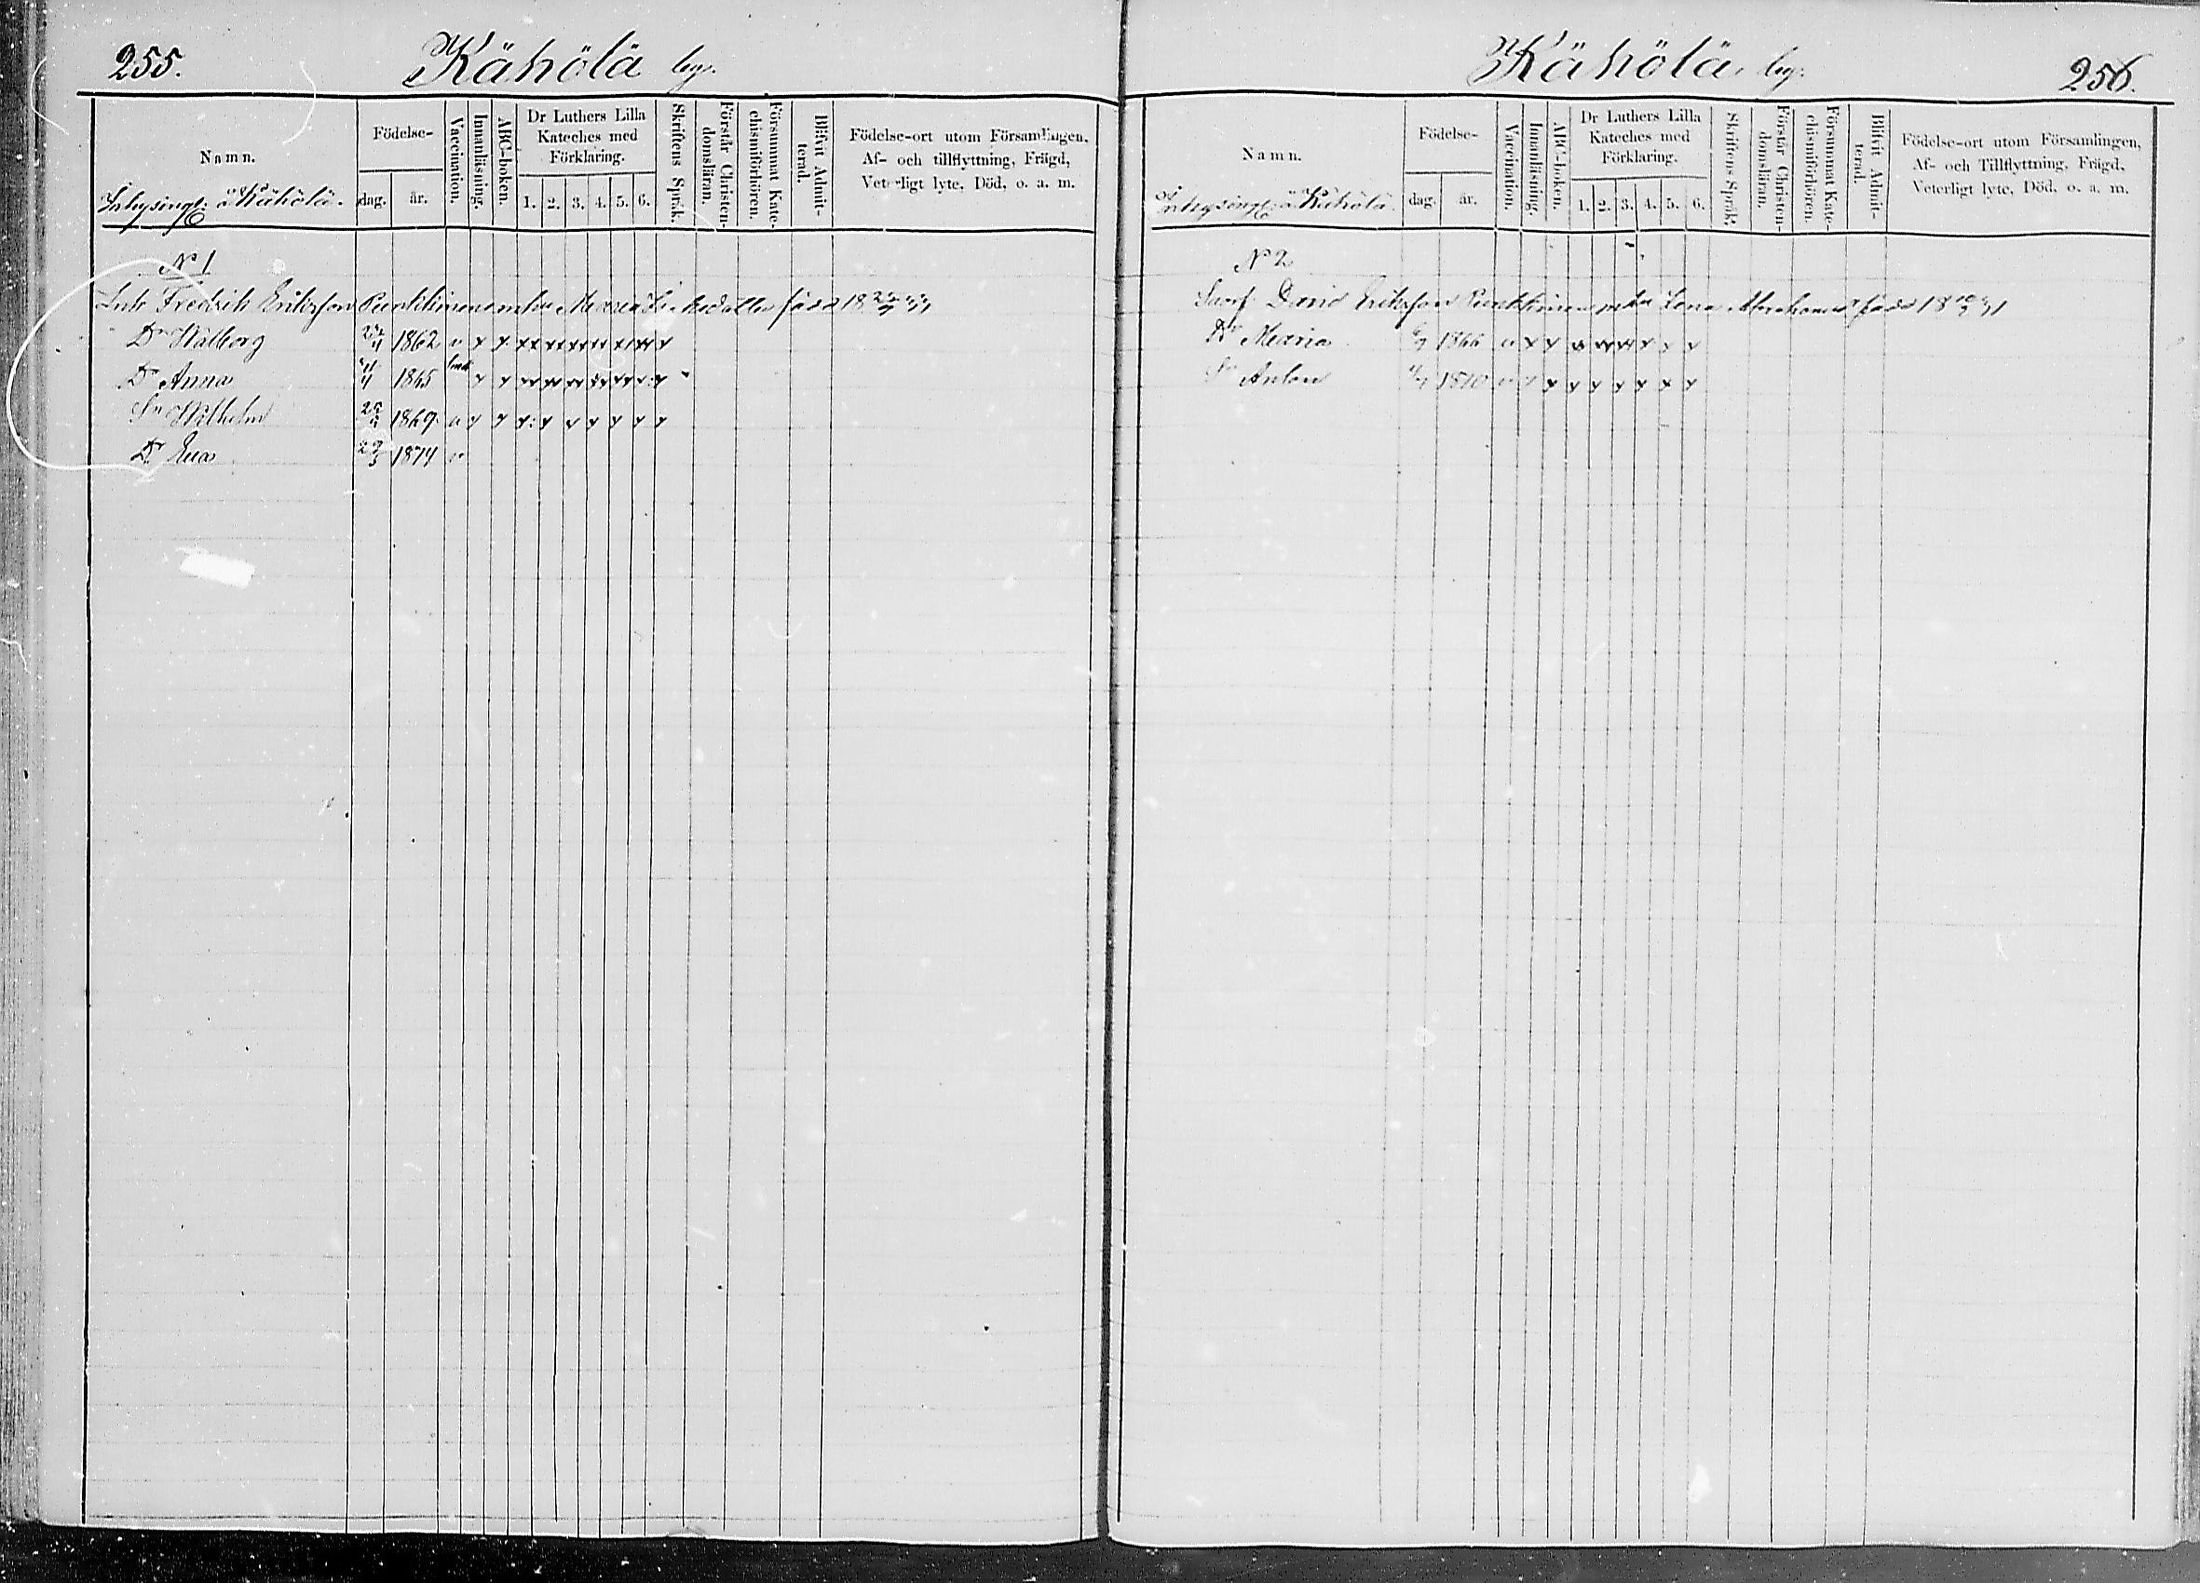 255.
Kähölä by.
Namn.
Inhysing: å Kähölä.
Födelse-
dag.
år.
Vaccination.
Innanläsning.
ABC-boken.
Dr Luthers Lilla
Kateches med
Förklaring.
1. 2. 3. 4. 5. 6.
Skriftens Språk.
Förstår Christen-
domsläran.
Försummat Kate-
chismiförhören.
Blifvit Admit-
terad.
Födelse-ort utom Församlingen,
Af- och tillflyttning, Frägd,
Veterligt lyte, Död, o. a. m.
N 1
Inh Fredrik Eriksson Punkkinen enka Maria född 18
Dr Walborg 1862 v x x
Dr Anna 1865 x x
Sn Wilhelm 1869 v x x
Dr Eva 23/3 1874 v
Kähölä by:
256.
Namn.
Inhysing: å Kähölä
Födelse-
dag.
år.
Vaccination.
Innanläsning.
ABC-boken.
Dr Luthers Lilla
Kateches med
Förklaring.
1. 2. 3. 4. 5. 6.
Skriftens Språk.
Förstår Christen-
domsläran.
Försummat Kate-
chismiförhören.
Blifvit Admit-
terad.
Födelse-ort utom Församlingen,
Af- och Tillflyttning, Frägd,
Veterligt lyte, Död, o. a. m.
N 2
David Eriksson Punkkinen enka Lena född 18
Dr Maria 1866 v x x
Sn Anton 1870 v